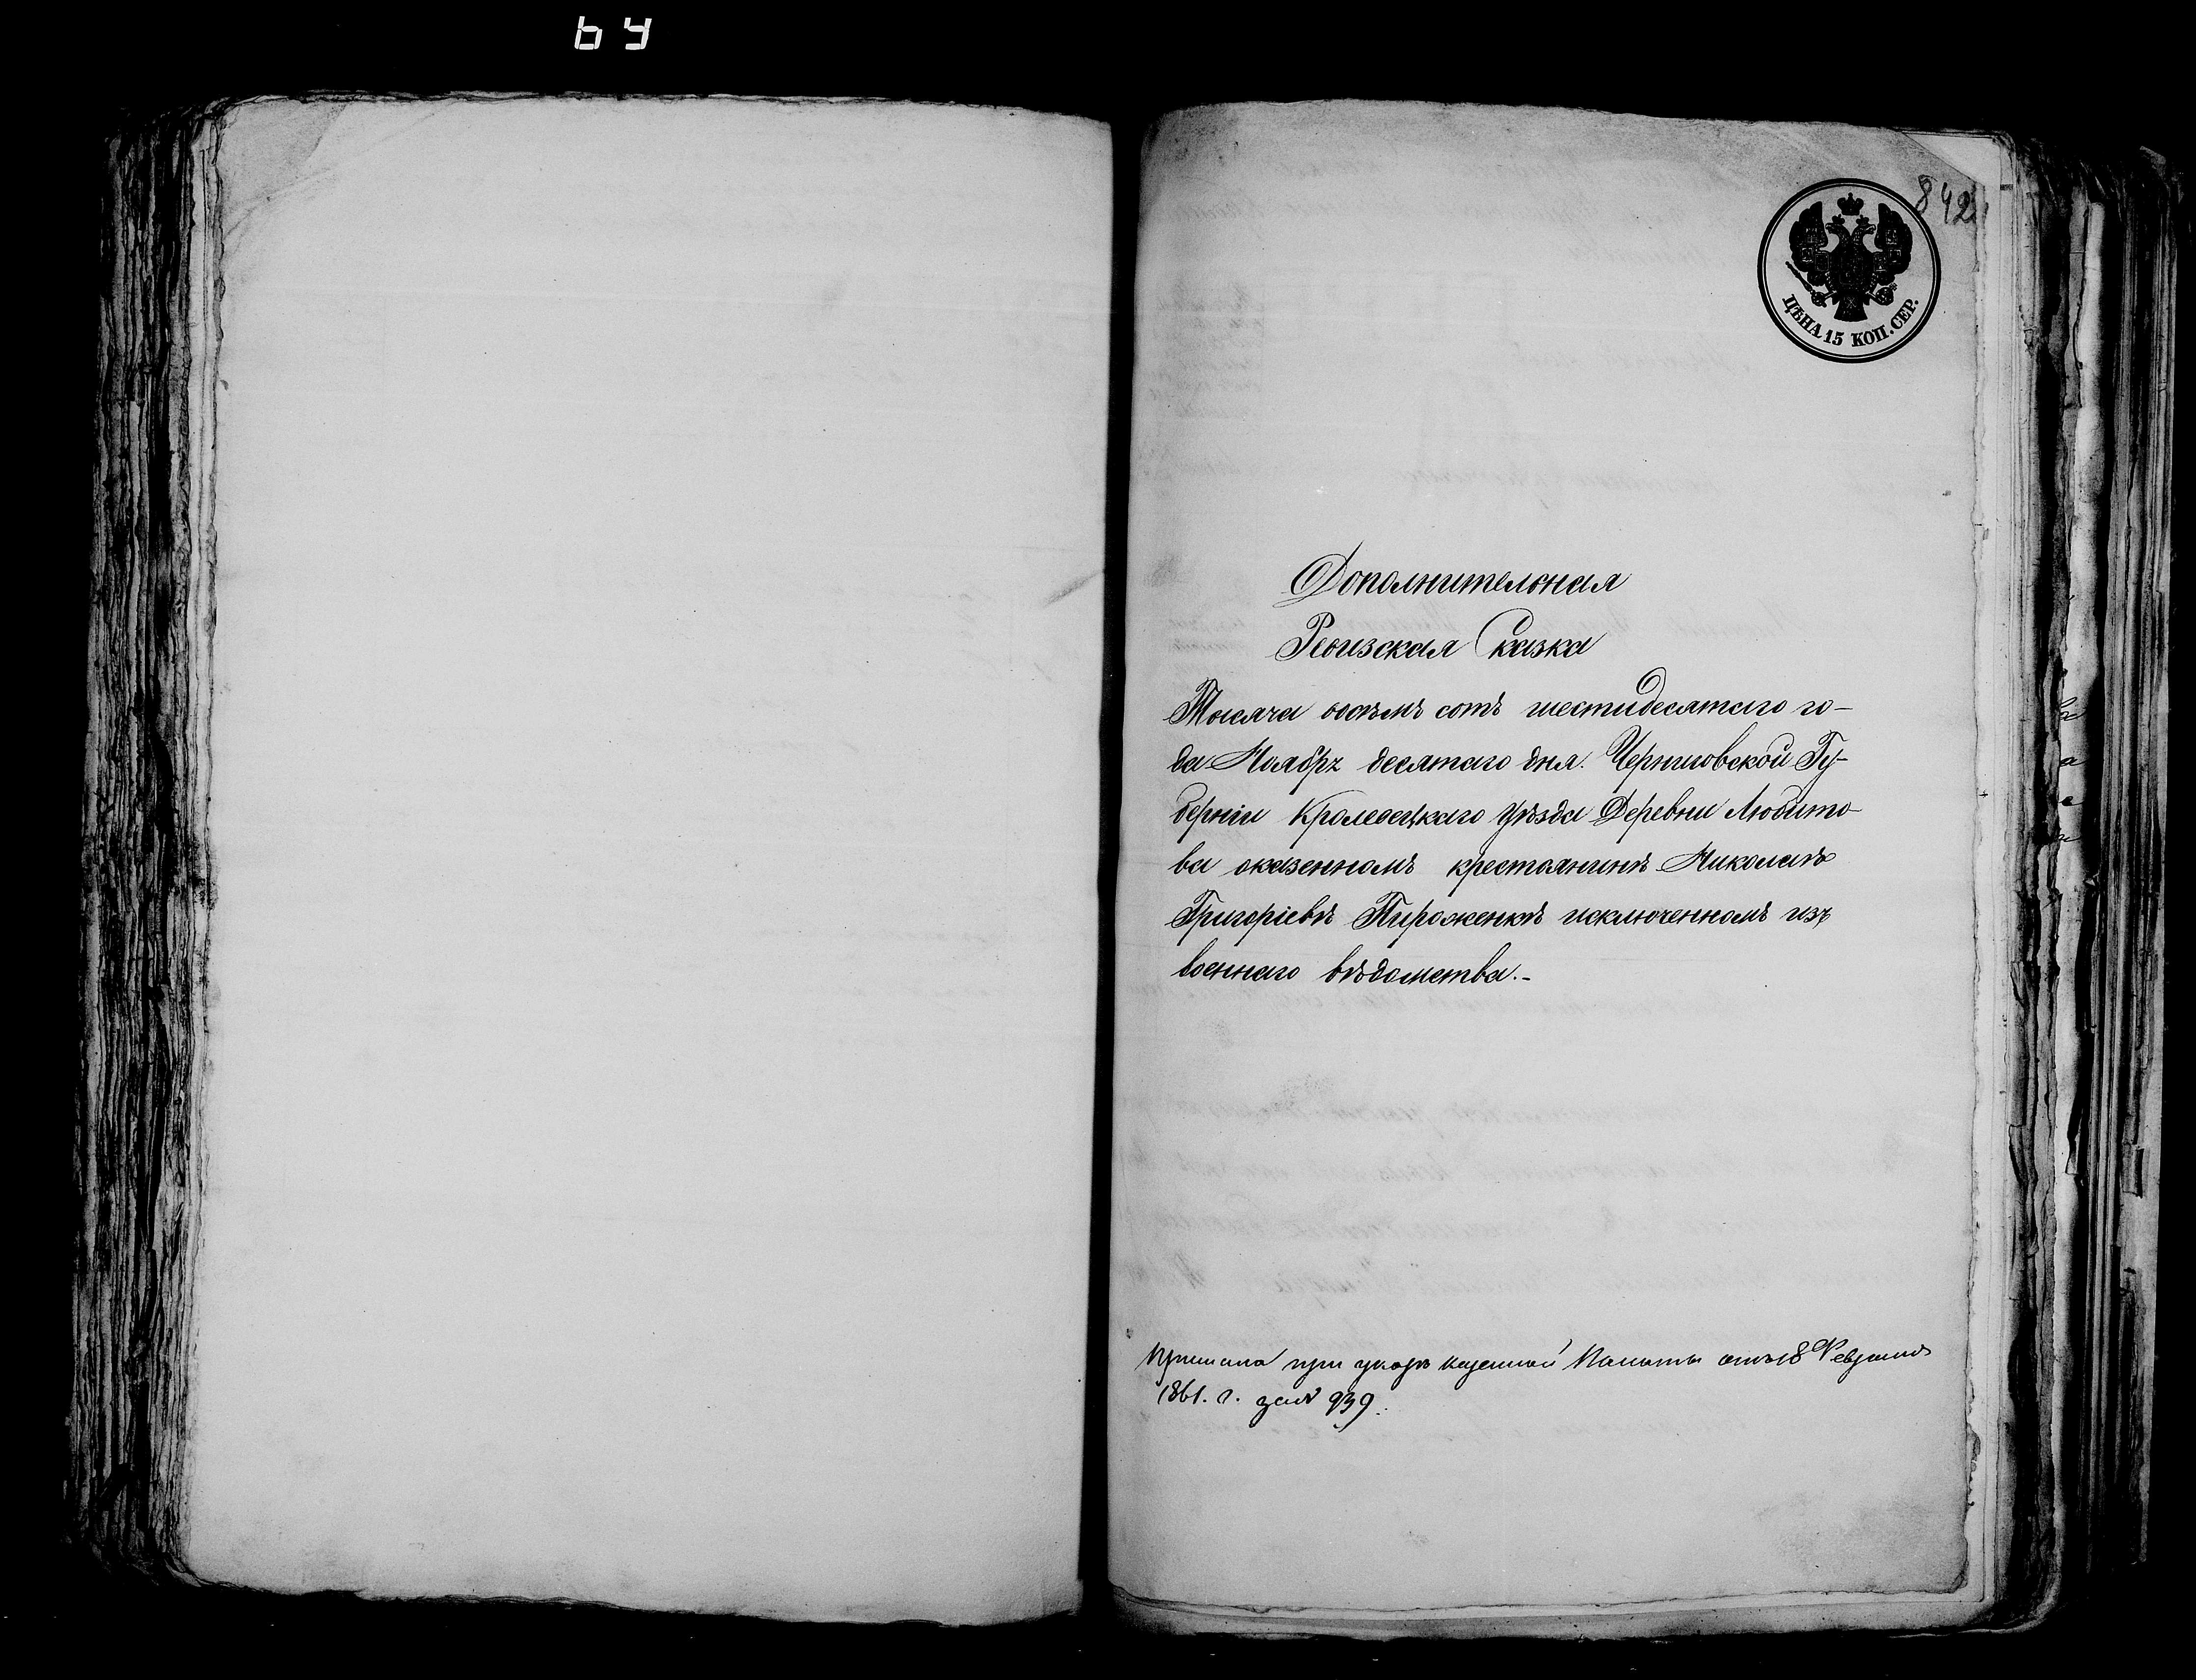 842
ЦѢНА 15 КОП. СЕР.
Дополнительная
Ревизская Сказка
Тысяча восѣмъ сотъ шестидесятаго го-
да Ноября десятаго дня. Черниговской Гу-
берніи Кролевецкаго уѣзда Деревни Любито-
ва оказенномъ крестьянинѣ Николаѣ
Григоріевѣ Пироженкѣ исключенномъ изъ
военнаго вѣдомства.-
при указѣ казенной Палаты отъ 8 Февраля
1861. г. за № 939.